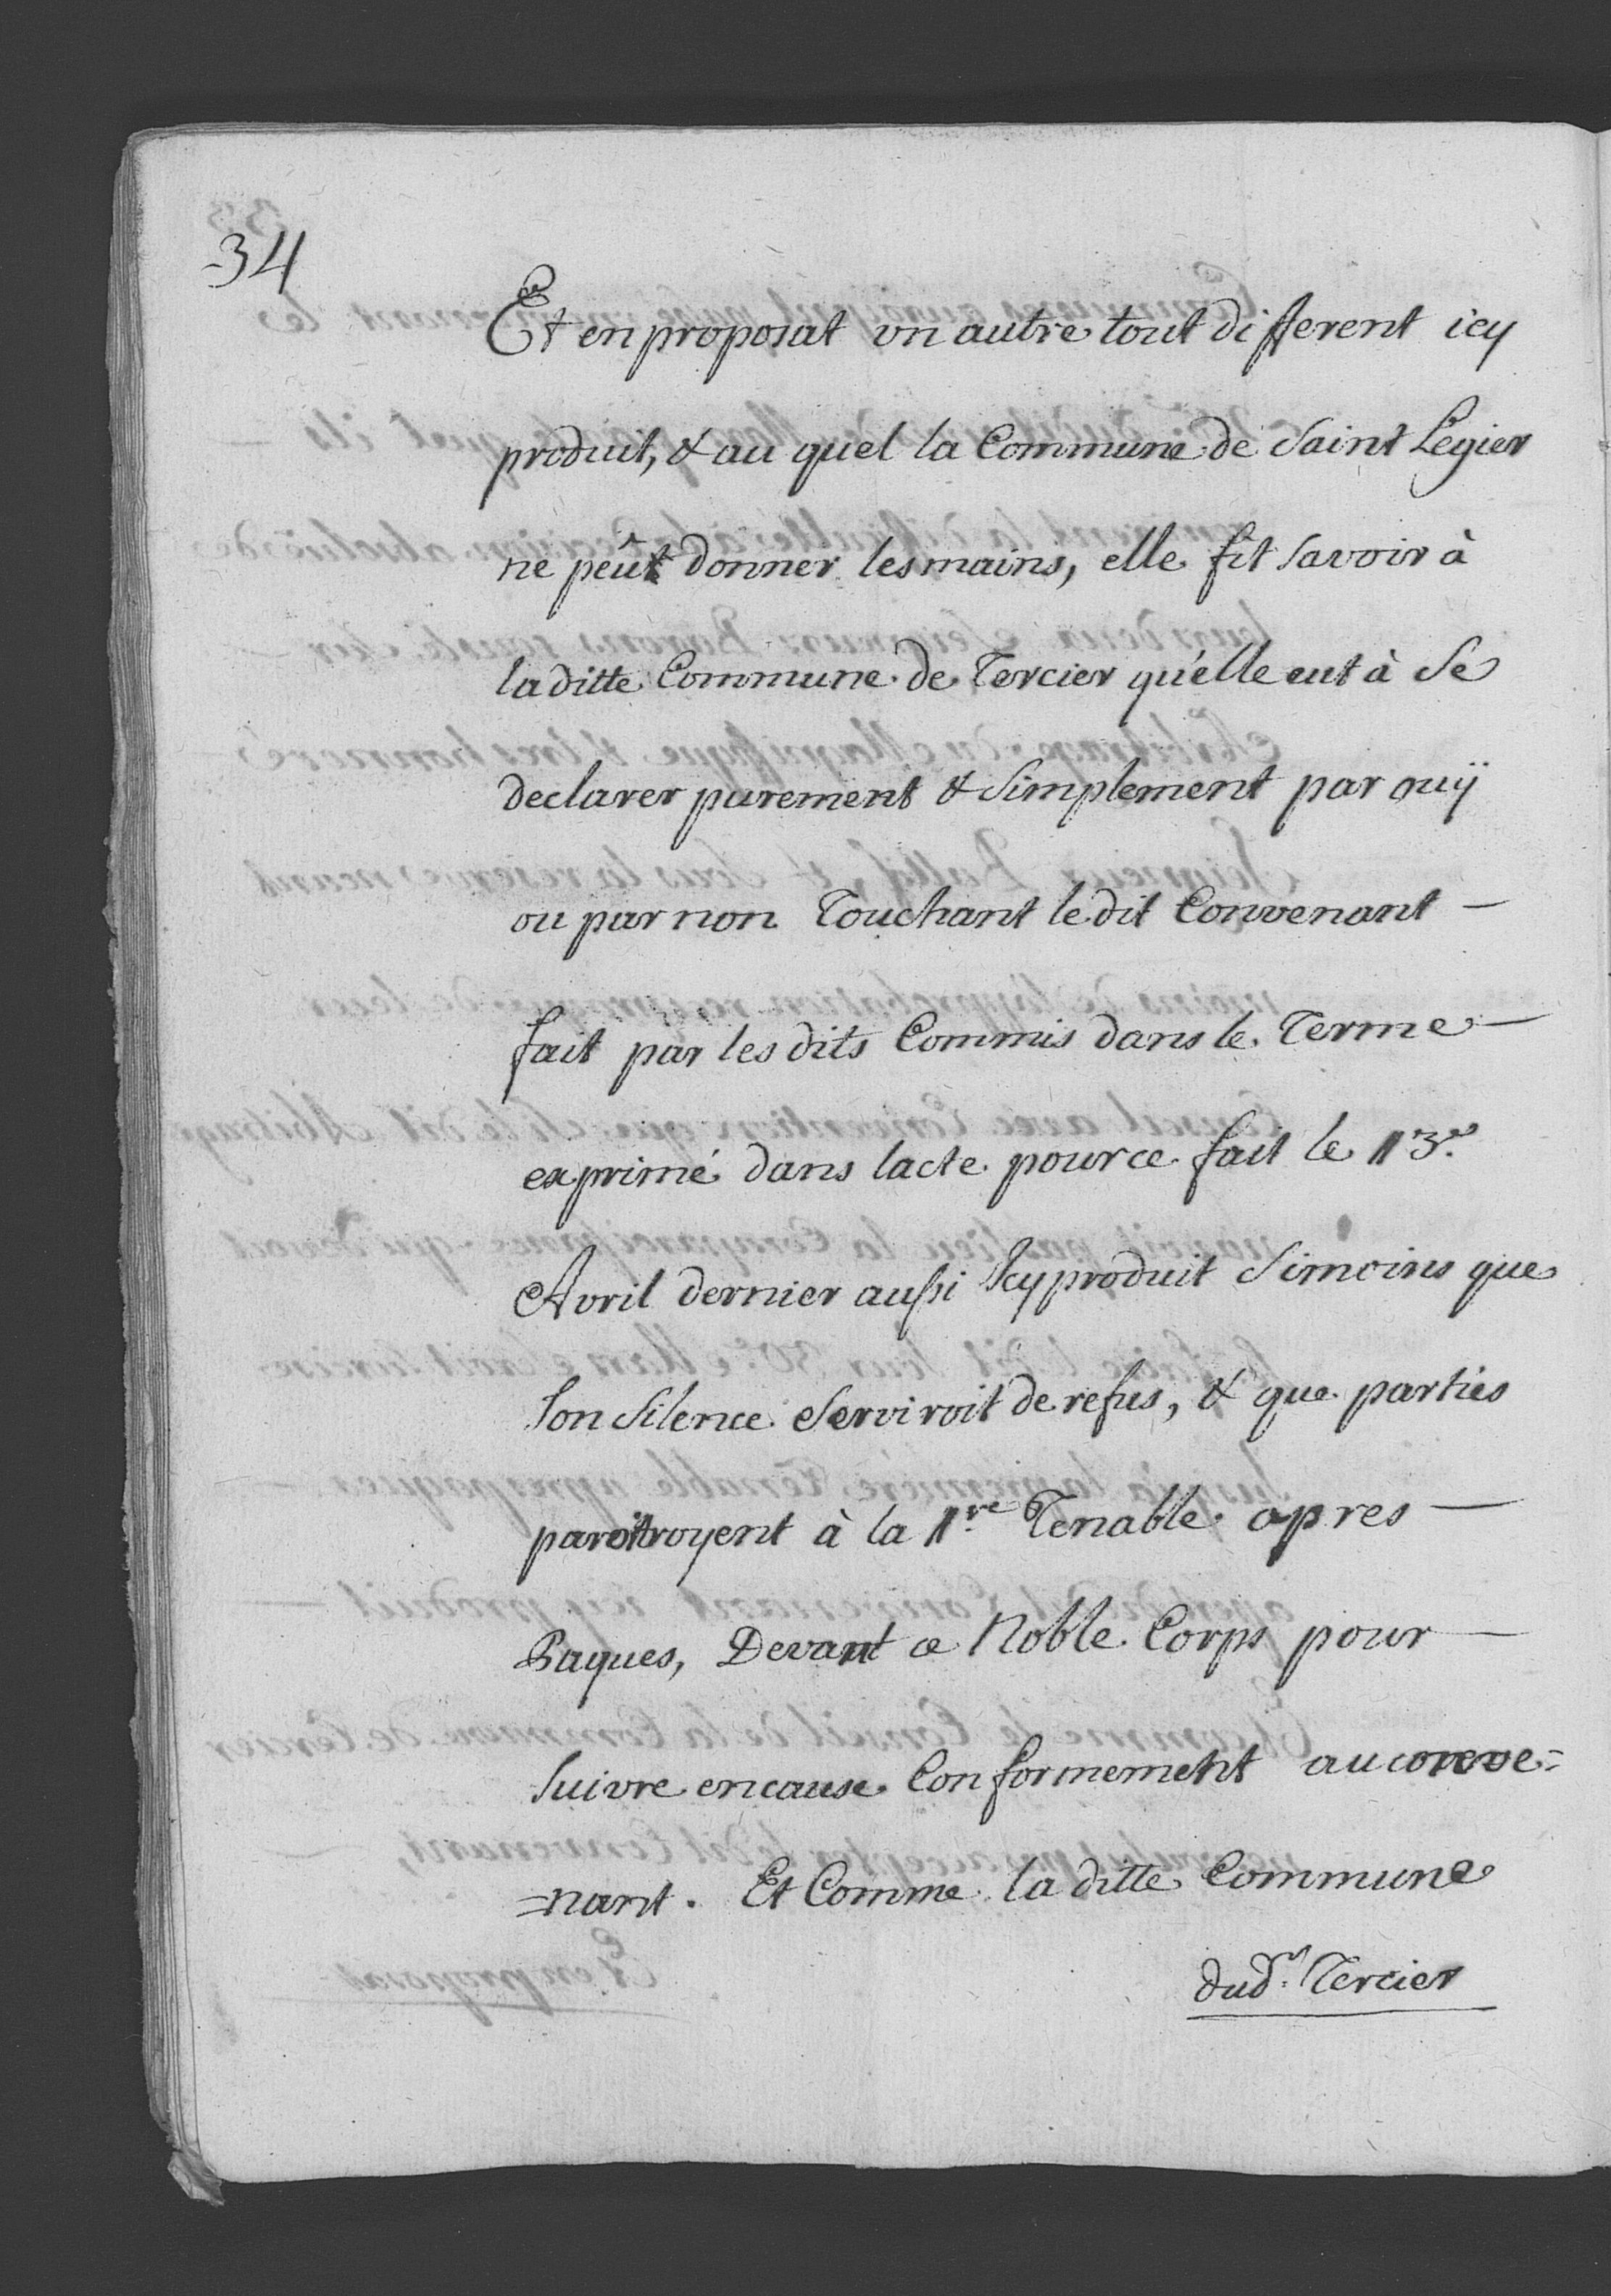 34
Et en proposat un autre tout different icy
produit, & au quel la Commune de Saint Legier
ne peût donner les mains, elle fit savoir à
la ditte Commune de Tercier qu'elle eut à se
declarer purement & simplement par ouÿ
ou par non Touchant le dit Convenant —
fait par les dits Commis dans le Terme —
exprimé dans lacte pource fait le 13.e
Avril dernier aussi Icy produit Simoins que
son silence serviroit de refus, & que parties
paroitroyent à la 1.re Tenable apres —
Paques, Devant ce Noble Corps pour —
suivre en cause Conformement au conve=
=nant. Et Comme la ditte Commune
dud.t Tercier